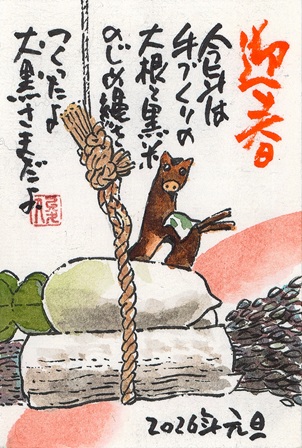 迎春
今年は
手づくりの
大根と黒米
のしめ縄を
つくったよ
大黒さまだよ
2026年元旦